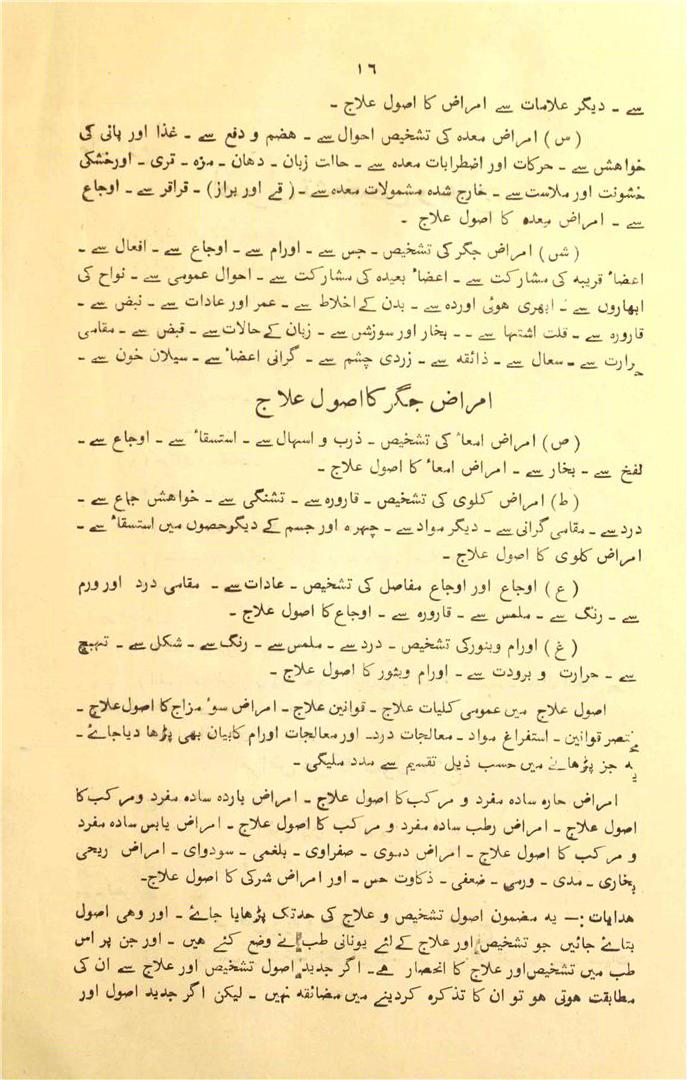 ١٦
سے ۔ دیگر علامات سے امراض کا اصول علاج ۔
( س ) امراض معدہ کی تشخیص احوال سے ۔ هضم و دفع سے ۔ غذا اور پانی کی
خواهش سے ۔ حرکات اور اضطرابات معدہ سے ۔ حالت زبان ۔ دهان ۔ مزہ ۔ تری ۔ اورخشکی
خشونت اور ملاست سے ۔ خارج شدہ مشمولات معدہ سے ۔ ( قے اور براز ) ۔ قراقر سے ۔ اوجاع
سے ۔ امراض معدہ کا اصول علاج ۔
( ش ) امراض جگر کی تشخیص ۔ جس سے ۔ اورام سے ۔ اوجاع سے ۔ افعال سے ۔
اعضاٴ قریبہ کی مشارکت سے ۔ اعضاٴ بعیدہ کی مشارکت سے ۔ احوال عمومی سے ۔ نواح کی
ابهاروں سے ۔ ابهری هوئی اوردہ سے ۔ بدن کے اخلاط سے ۔ عمر اور عادات سے ۔ نبض سے ۔
قارورہ سے ۔ قلت اشتها سے ۔ ۔ بخار اور سوزش سے ۔ زبان کے حالات سے ۔ قبض سے ۔ مقامی
حرارت سے ۔ سعال سے ۔ ذائقہ سے ۔ زردی چشم سے ۔ گرانی اعضاٴ سے ۔ سیلان خون سے ۔
امراض جگر کا اصول علاج
( ص ) امراض امعاٴ کی تشخیص ۔ ذرب و اسہال سے ۔ استسقاٴ سے ۔ اوجاع سے ۔
نفخ سے ۔ بخار سے ۔ امراض امعاٴ کا اصول علاج ۔
( ط ) امراض کلوی کی تشخیص ۔ قارورہ سے ۔ تشنگی سے ۔ خواهش جماع سے ۔
درد سے ۔ مقامی گرانی سے ۔ دیگر مواد سے ۔ چہرہ اور جسم کے دیگر حصوں میں استسقاٴ سے ۔
امراض کلوی کا اصول علاج ۔
( ع ) اوجاع اور اوجاع مفاصل کی تشخیص ۔ عادات سے ۔ مقامی درد اور ورم
سے ۔ رنگ سے ۔ ملمس سے ۔ قارورہ سے ۔ اوجاع کا اصول علاج ۔
( غ ) اورام وبثور کی تشخیص ۔ درد سے ۔ ملمس سے ۔ رنگ سے ۔ شکل سے ۔ تہیج
سے ۔ حرارت و برودت سے ۔ اورام وبثور کا اصول علاج ۔
اصول علاج میں عمومی کلیات علاج ۔ قوانین علاج ۔ امراض سوٴ مزاج کا اصول علاج ۔
مختصر قوانین ۔ استفراغ مواد ۔ معالجات درد۔ اور معالجات اورام کابیان بهی پڑها دیاجائے ۔
یہ جز پڑهانے میں حسب ذیل تقسیم سے مدد ملیگی ۔
امراض حارہ سادہ مفرد و مرکب کا اصول علاج ۔ امراض باردہ سادہ مفرد ومرکب کا
اصول علاج ۔ امراض رطب سادہ مفرد و مرکب کا اصول علاج ۔ امراض یابس سادہ مفرد
و مرکب کا اصول علاج ۔ امراض دموی ۔ صفراوی ۔ بلغمی ۔ سودوای ۔ امراض ریحی
بخاری ۔ مدی ۔ ورمی ۔ ضعفی ۔ ذکاوت حس ۔ اور امراض شرکی کا اصول علاج۔
هدایات :— یہ مضمون اصول تشخیص و علاج کی حد تک پڑهایا جائے ۔ اور وهی اصول
بتائے جائیں جو تشخیص اور علاج کے لئے یونانی طب نے وضع کئے هیں ۔ اور جن پر اس
طب میں تشخیص اور علاج کا انحصار ہے۔ اگر جدید اصول تشخیص اور علاج سے ان کی
مطابقت هوتی هو تو ان کا تذکرہ کردینے میں مضائقہ نہیں ۔ لیکن اگر جدید اصول اور